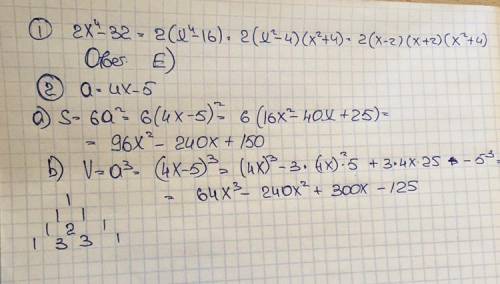 ① 2x⁴-32 = 2(x⁴-16) = 2(x²-4)(x²+4) = 2(x-2)(x+2)(x²+4)
Ответ E)
② a = 4x-5
a) S = 6a² = 6(4x-5)² = 6(16x²-40x+25) =
= 96x² - 240x + 150
b) V = a³ = (4x-5)³ = (4x)³ - 3·(4x)²·5 + 3·4x·25 - 5³ =
= 64x³ - 240x² + 300x - 125
1
1 1
1 2 1
1 3 3 1